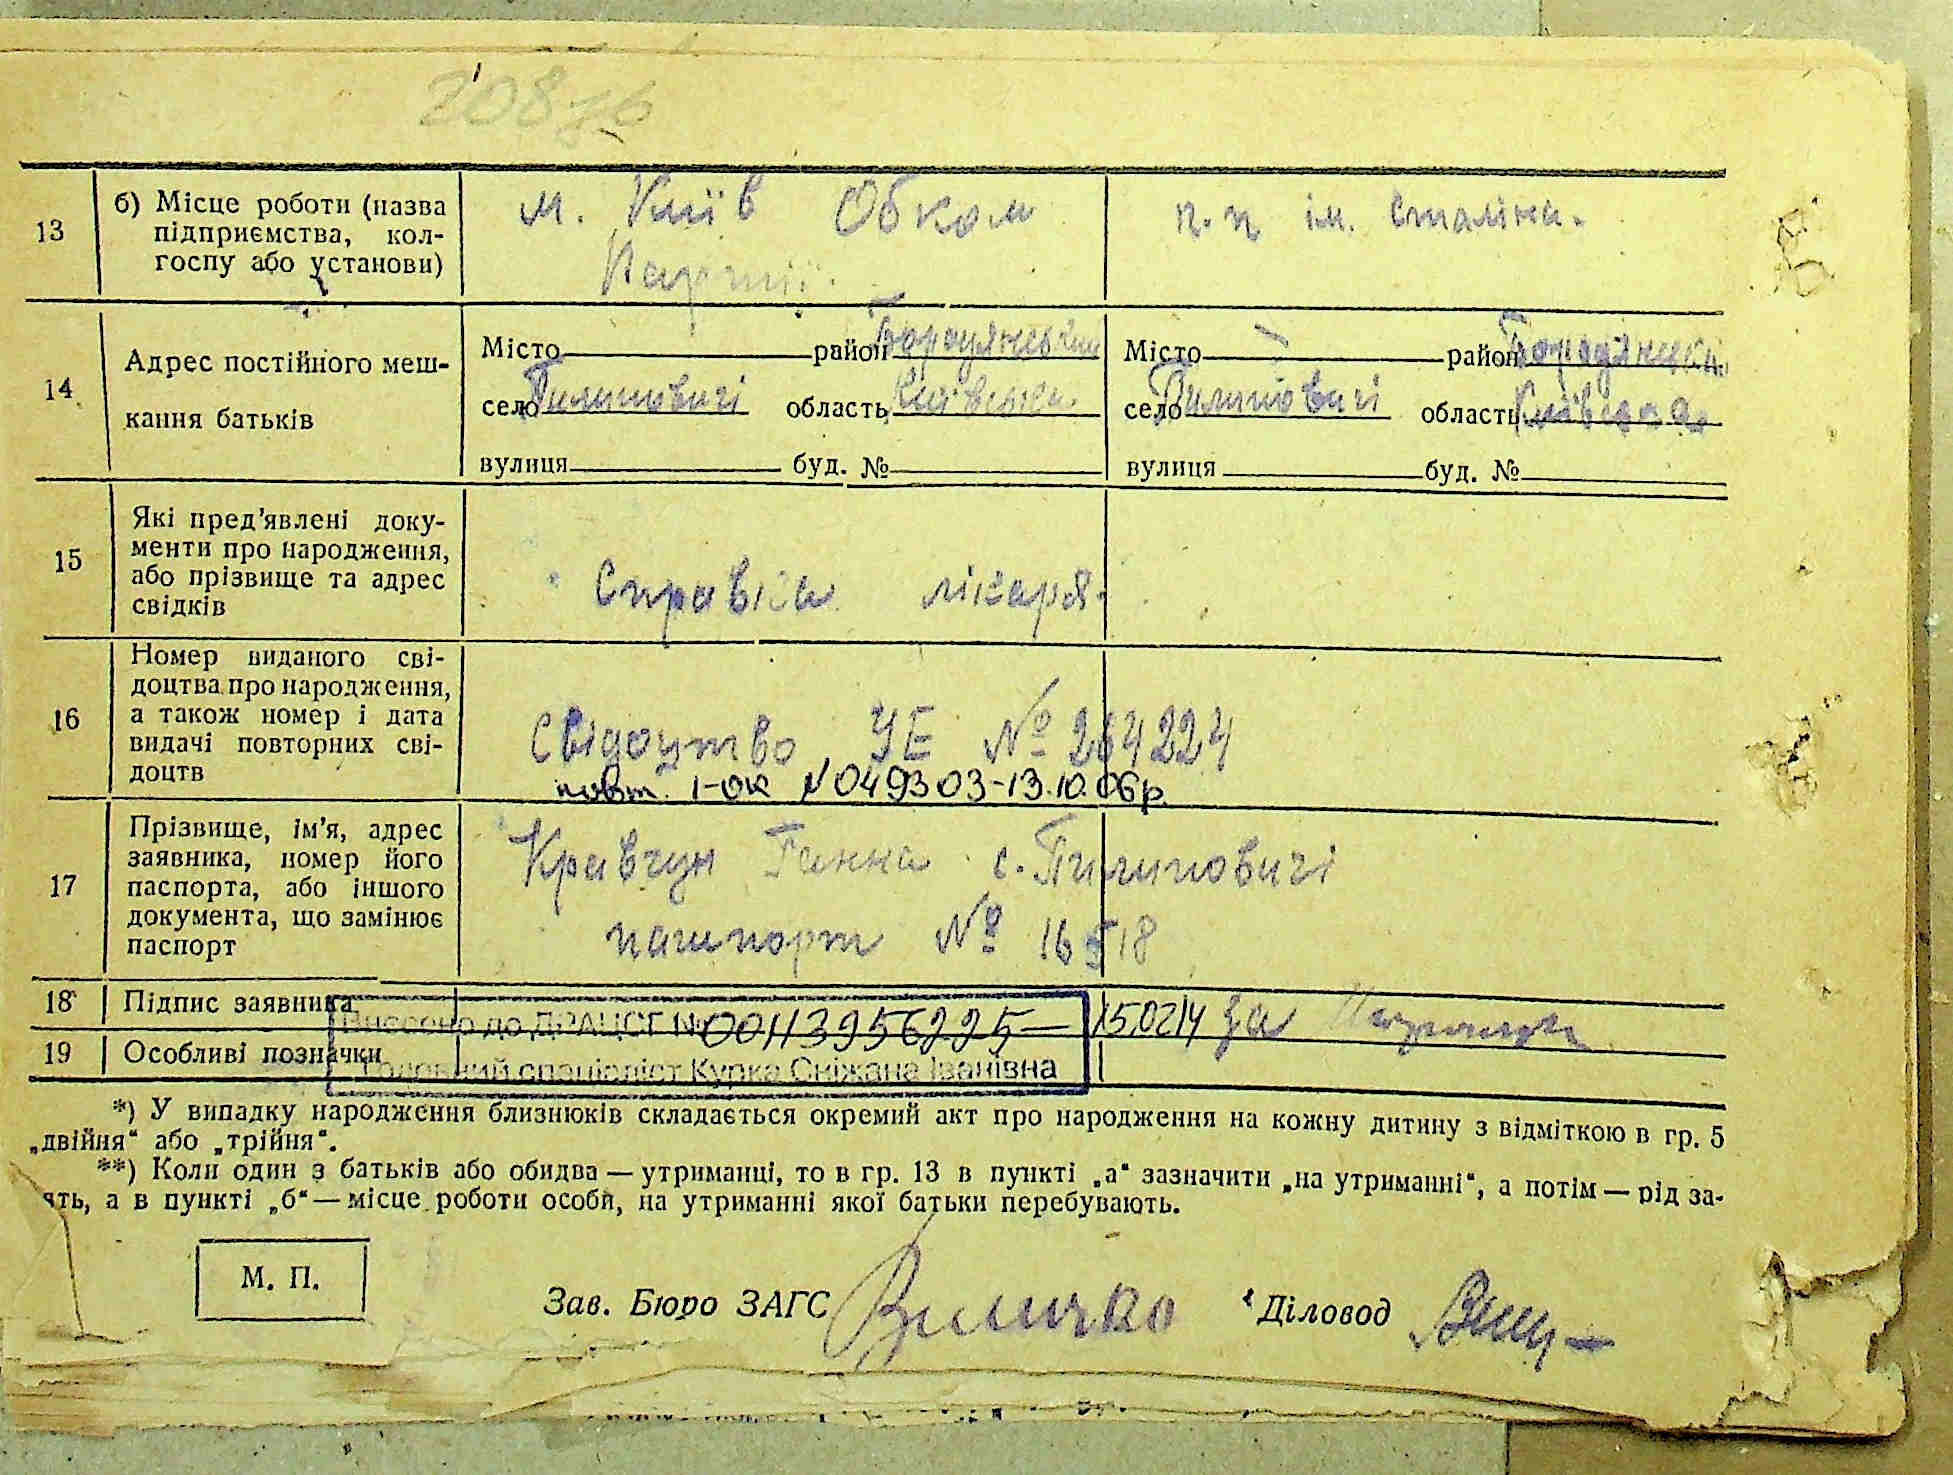 208
13
б) Місце роботи (назва
підприємства, кол-
госпу або установи)
м. Київ Обком
Партії.
п. п ім. Сталіна.
14
Адрес постійного меш-
кання батьків
Місто район Бородянський
село Пилиповичі область Київська.
вулиця буд. №
Місто район Бородянськ.
село Пилиповичі область Київська
вулиця буд. №
15
Які пред'явлені доку-
менти про народження,
або прізвище та адрес
свідків
Справка лікаря.
16
Номер виданого сві-
доцтва про народження,
а також номер і дата
видачі повторних сві-
доцтв
Свідоцтво УЕ № 264224
повт. 1-ок N 049303-13.10.06р.
17
Прізвище, ім'я, адрес
заявника, номер його
паспорта, або іншого
документа, що замінює
паспорт
Кравчун Ганна с. Пилиповичі
пашпорт № 16518
18 Підпис заявника
Внесено до ДРАЦСГ № 00113956225 15.02.14 За
19 Особливі позначки
Головний спеціаліст Курка Сніжана Іванівна
*) У випадку народження близнюків складається окремий акт про народження на кожну дитину з відміткою в гр. 5
„двійня“ або „трійня“.
**) Коли один з батьків або обидва — утриманці, то в гр. 13 в пункті „а“ зазначити „на утриманні“, а потім — рід за-
ять, а в пункті „б“ — місце роботи особи, на утриманні якої батьки перебувають.
М. П.
Зав. Бюро ЗАГС Величко Діловод